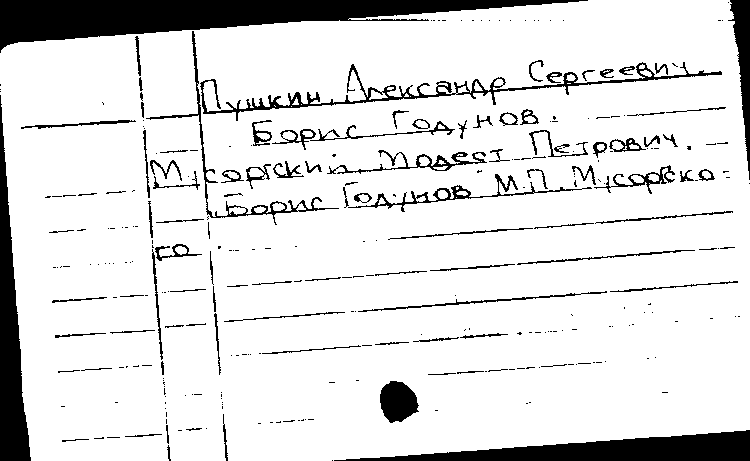 Пушкин, Александр Сергеевич.
Борис Годунов.
Мусоргский, Модест Петрович.
Борис Годунов М.П. Мусоргско-
го.